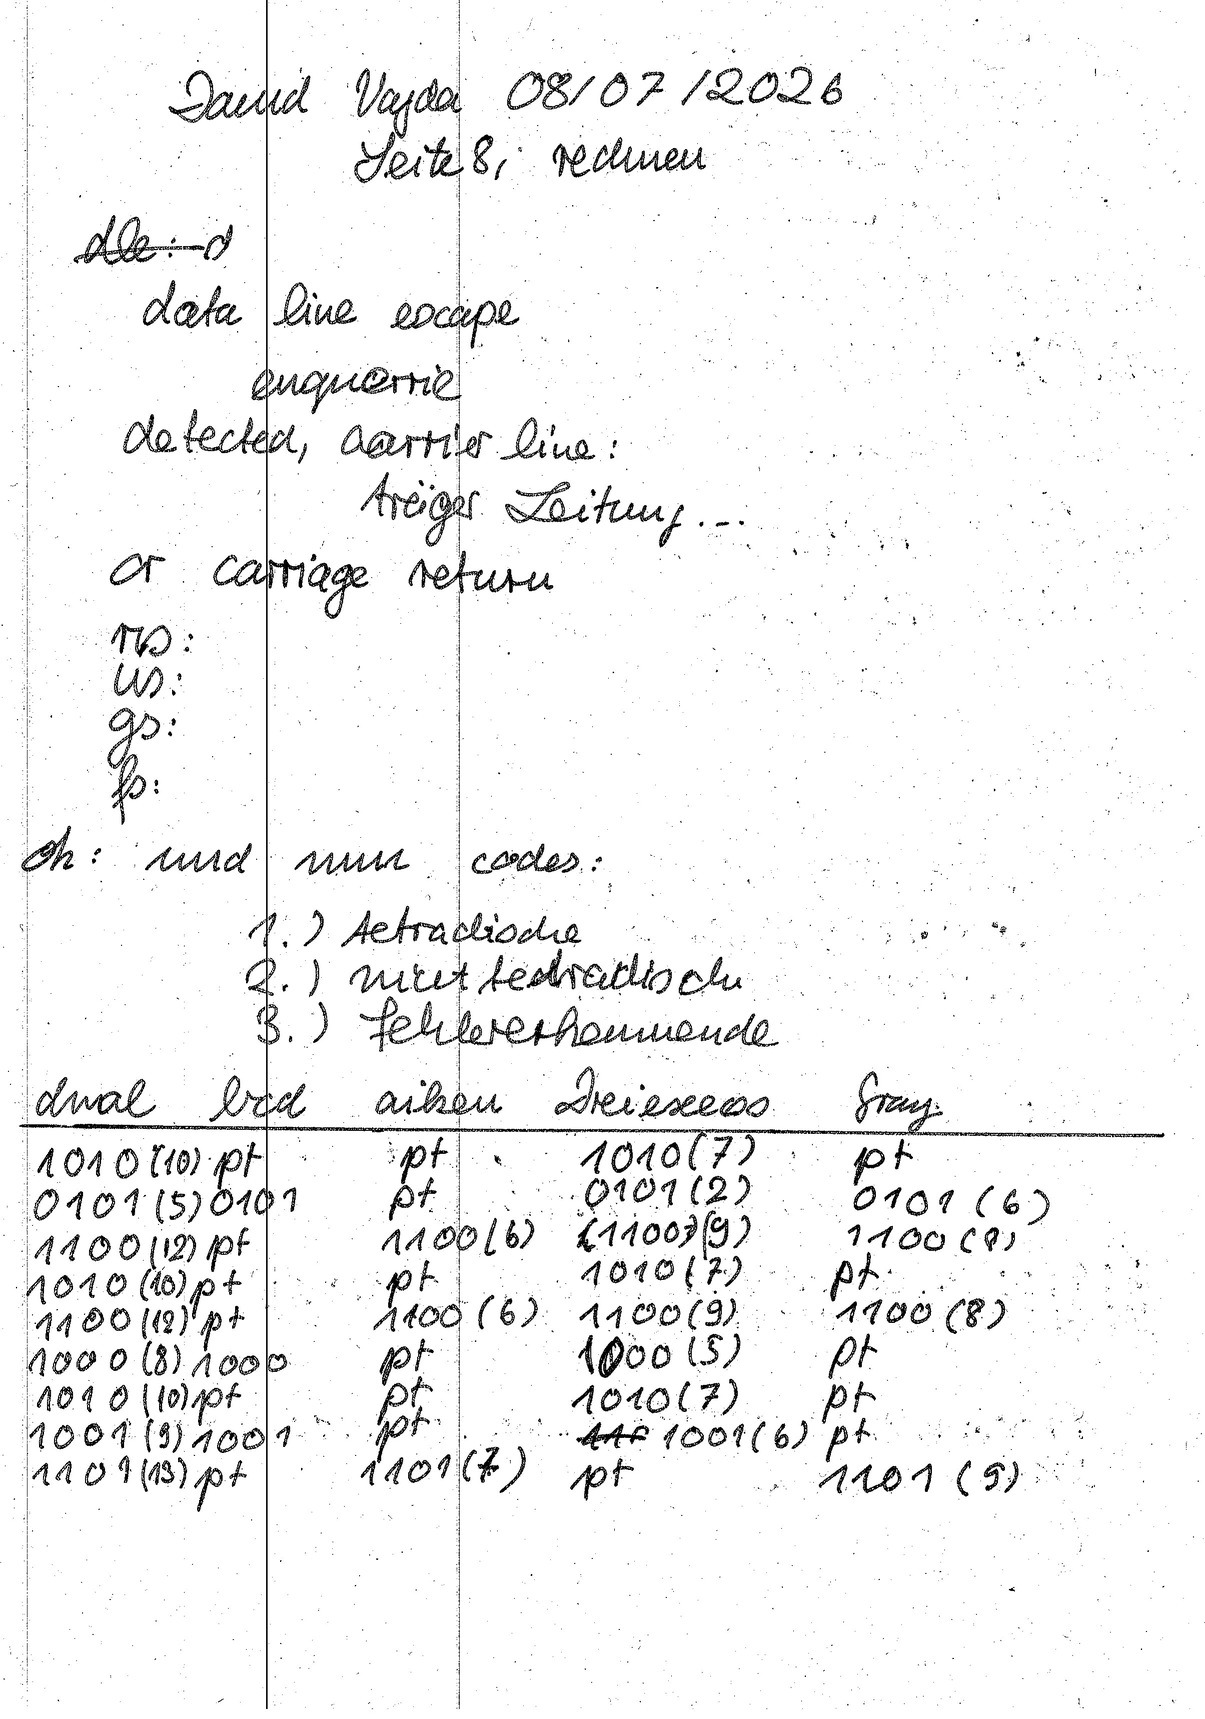 David Vajda 08/07/2026
Seite 8, rechnen
dle: d
data line escape
enquerrie
detected, carrier line:
träger Leitung...
cr carriage return
rs:
us:
gs:
fs:
ok: und nun codes:
1.) tetradische
2.) nicht tedradische
3.) fehlererkennende
dual bcd aiken Dreiexcess Gray
1010 (10) pt pt 1010 (7) pt
0101 (5) 0101 pt 0101 (2) 0101 (6)
1100 (12) pt 1100 (6) (1100) (9) 1100 (8)
1010 (10) pt pt 1010 (7) pt
1100 (12) pt 1100 (6) 1100 (9) 1100 (8)
1000 (8) 1000 pt 1000 (5) pt
1010 (10) pt pt 1010 (7) pt
1001 (9) 1001 pt 1001 (6) pt
1101 (13) pt 1101 (7) pt 1101 (9)